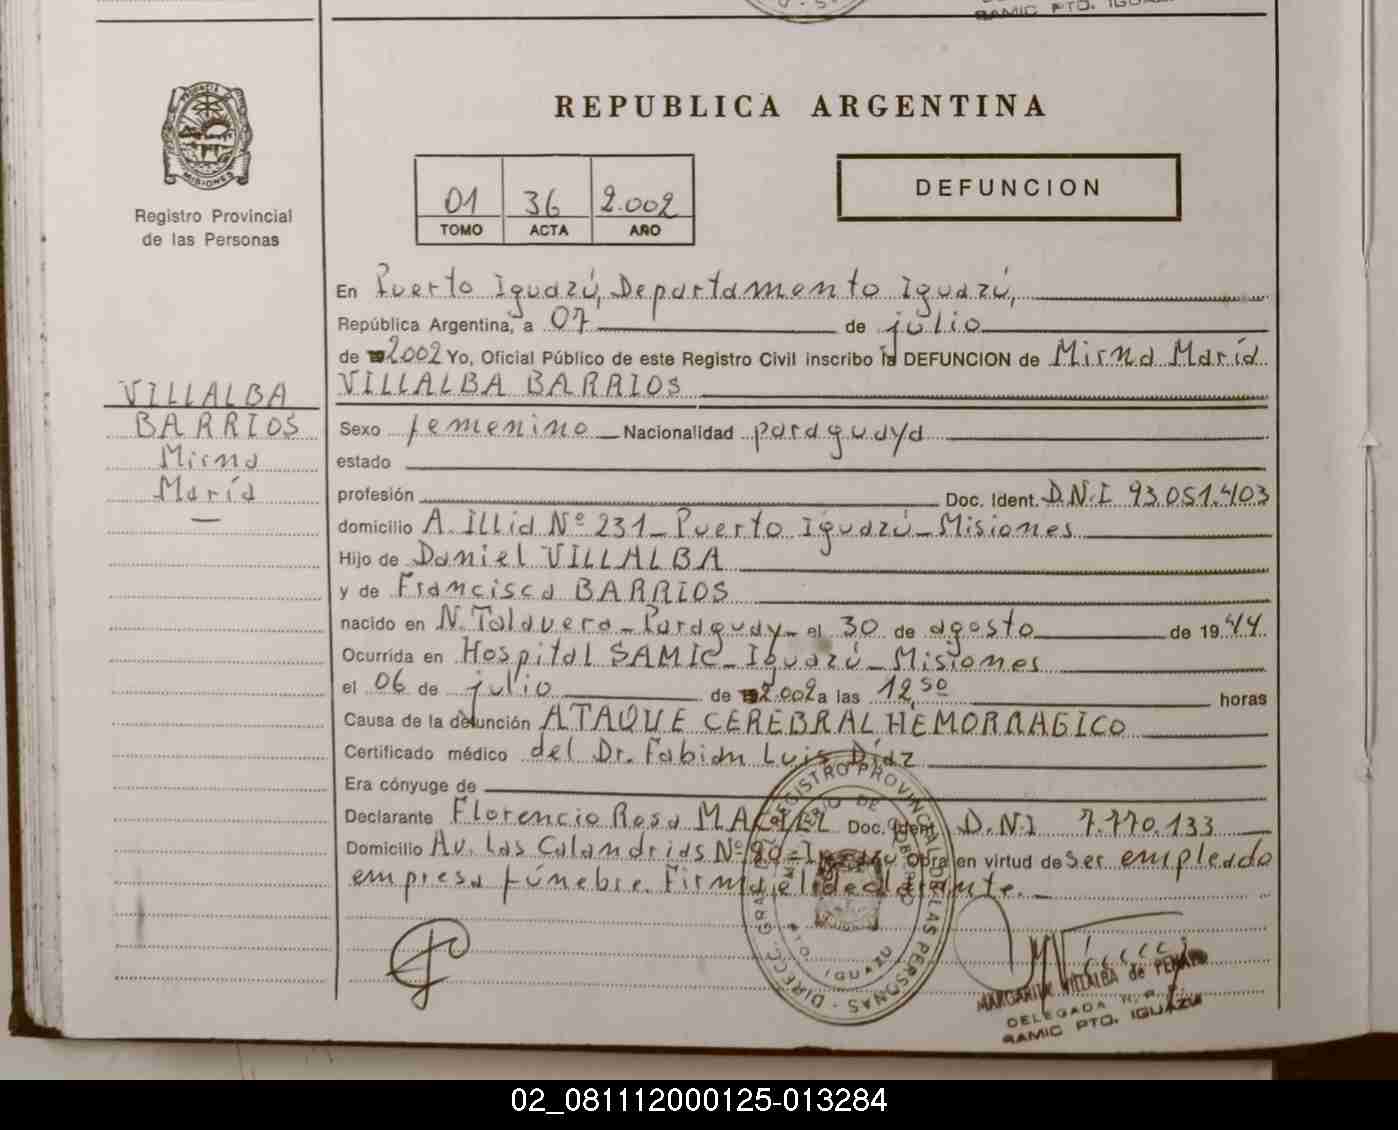 SAMIC PTO. IGUAZU
PROVINCIA DE
MISIONES
Registro Provincial
de las Personas
REPUBLICA ARGENTINA
01 36 2.002
TOMO ACTA AÑO
DEFUNCION
En Puerto Iguazú, Departamento Iguazú,
República Argentina, a 07 de julio
de 2002 Yo, Oficial Público de este Registro Civil inscribo la DEFUNCION de Mirna María
VILLALBA BARRIOS
VILLALBA
BARRIOS
Mirna
María
Sexo femenino Nacionalidad paraguaya
estado
profesión Doc. Ident. D.N.I 93.051.403
domicilio A. Illia Nº 231_ Puerto Iguazú_ Misiones
Hijo de Daniel VILLALBA
y de Francisca BARRIOS
nacido en N. Talavera_ Paraguay_ el 30 de agosto de 1944
Ocurrida en Hospital SAMIC_ Iguazú_ Misiones
el 06 de julio de 2.002 a las 12,50 horas
Causa de la defunción ATAQUE CEREBRAL HEMORRAGICO
Certificado médico del Dr. Fabian Luis Díaz
Era cónyuge de
Declarante Florencio Rosa MACIEL Doc. Ident. D.N.I 7.770.133
Domicilio Av. Las Calandrias Nº 80_ Iguazú Obra en virtud de ser empleado
empresa fúnebre. Firma el declarante._
DIRECC. GRAL. REGISTRO PROVINCIAL DE LAS PERSONAS
MINISTERIO DE GOBIERNO
PTO. IGUAZU
MARGARITA VILLALBA de
DELEGADA R. P. P.
SAMIC PTO. IGUAZU
02_081112000125-013284